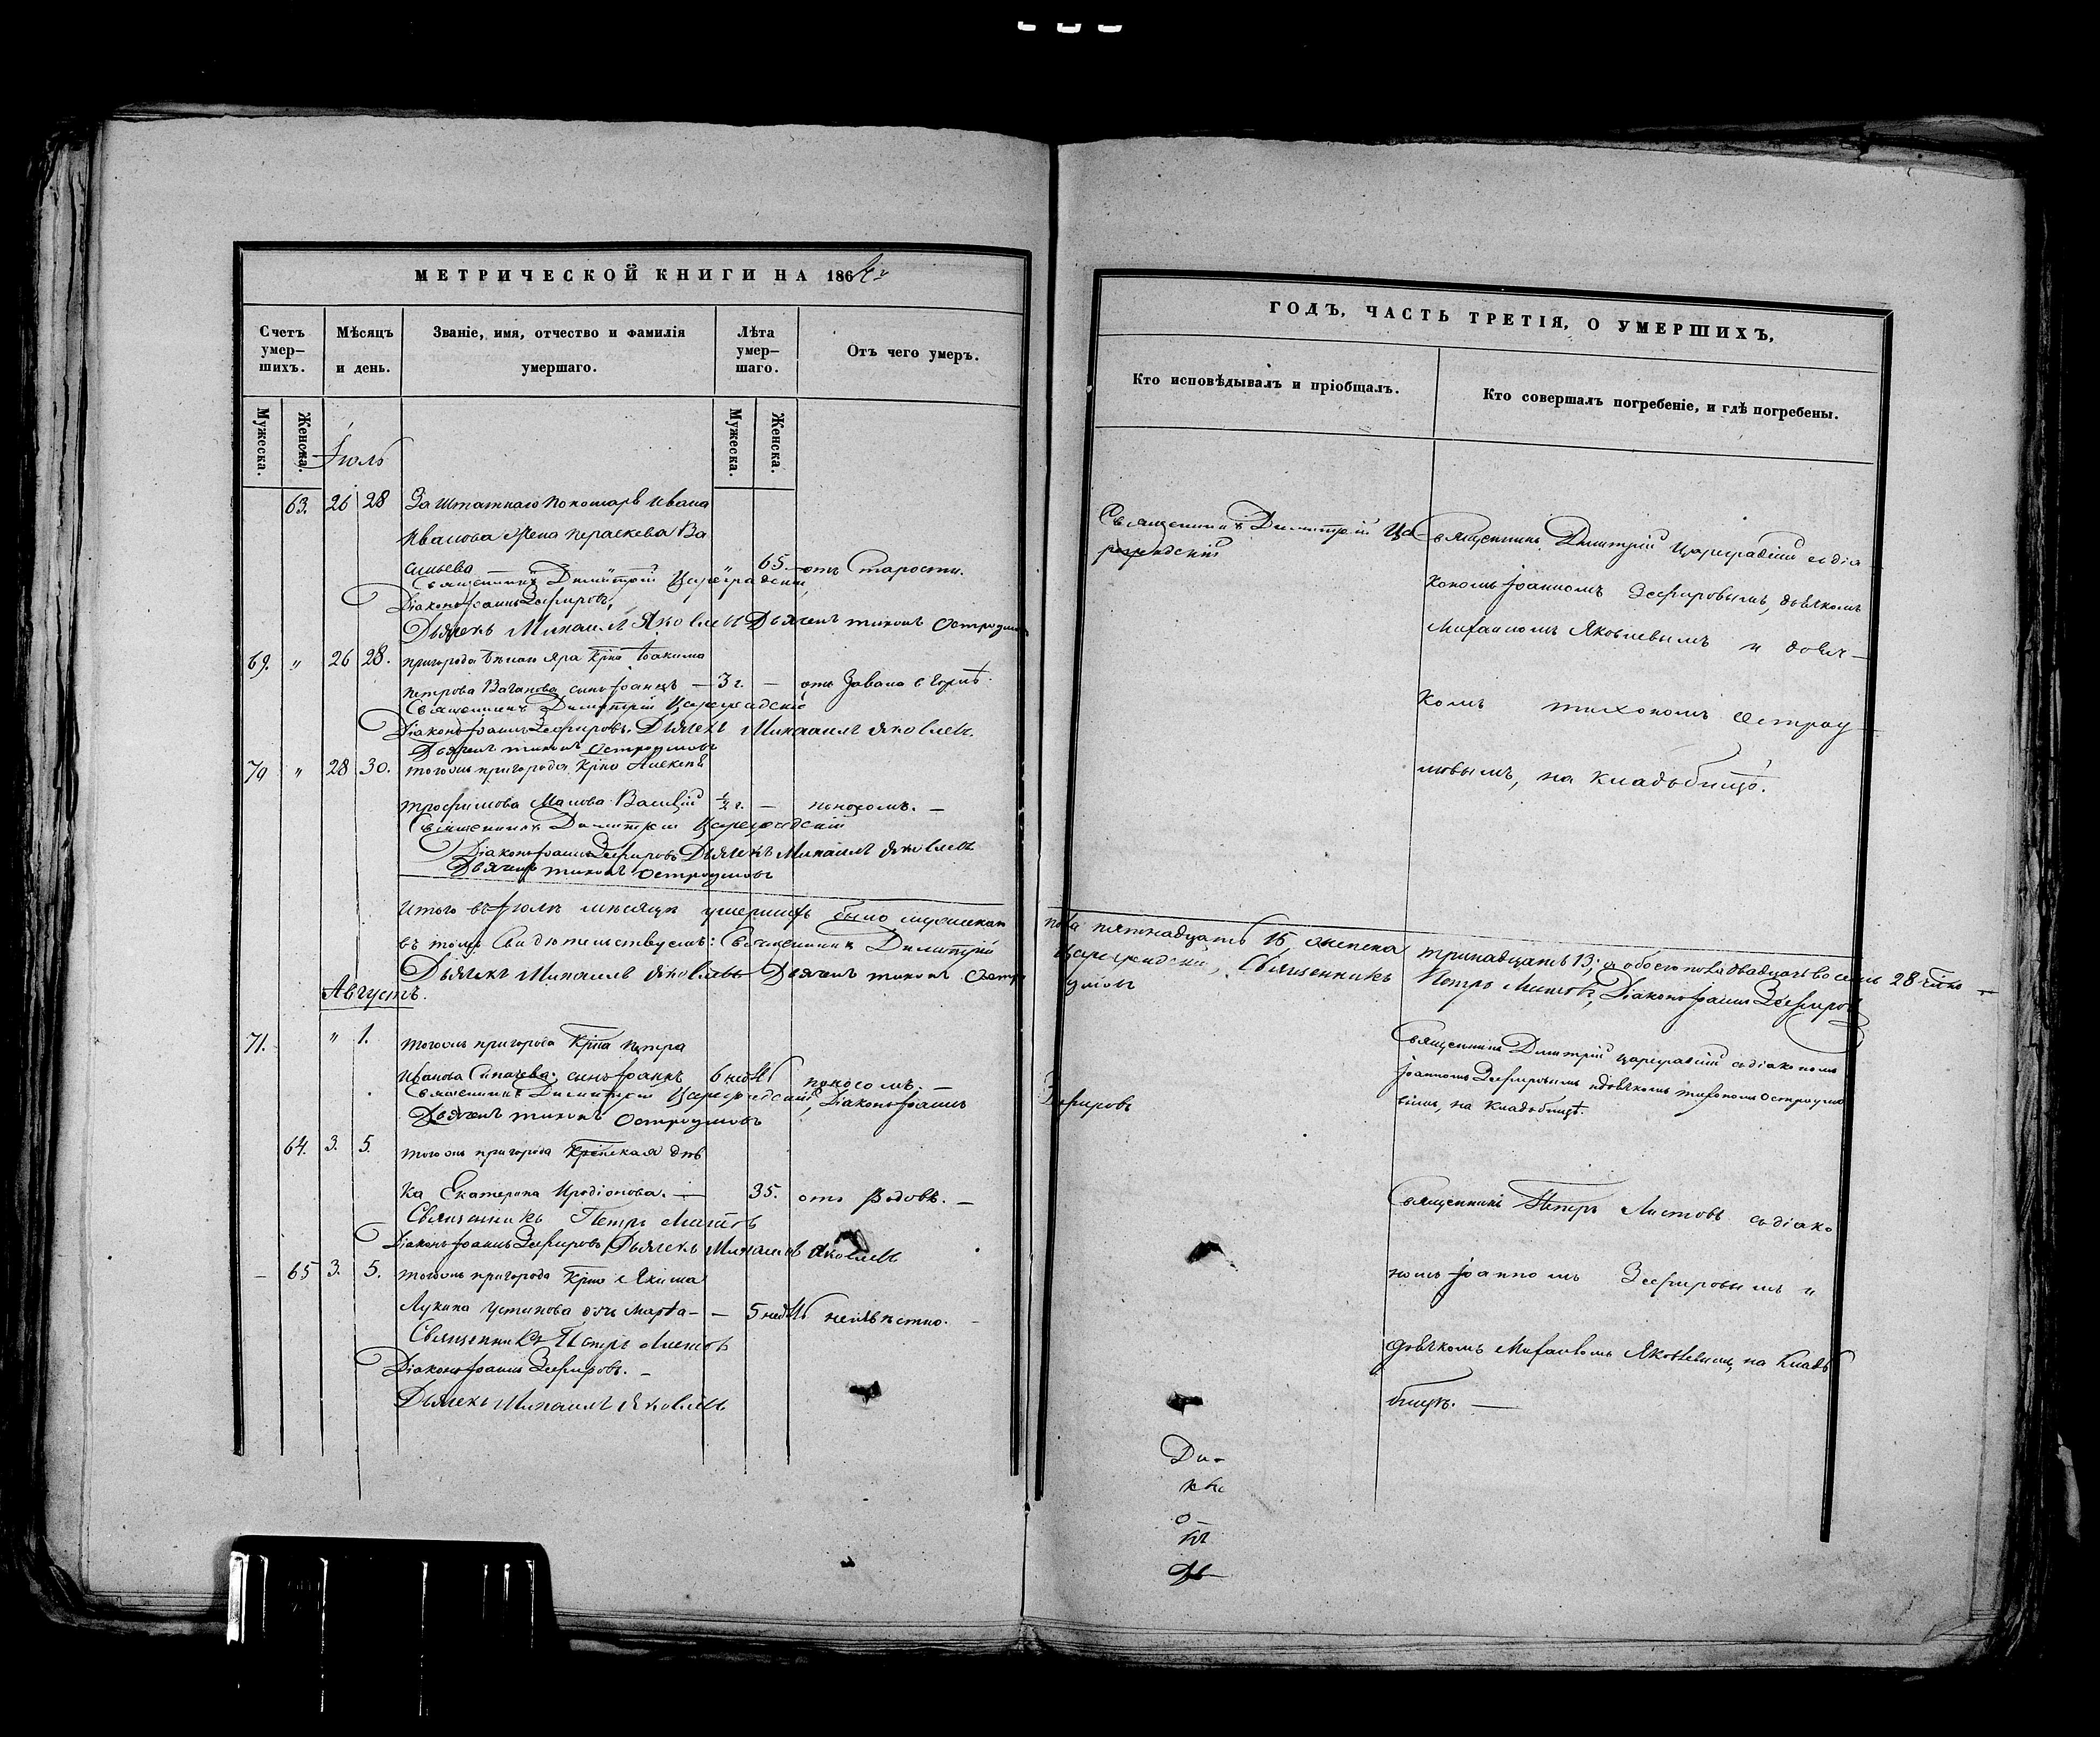 МЕТРИЧЕСКОЙ КНИГИ НА 1864
Счетъ умер–шихъ.
Мѣсяцъ и день.
Званіе, имя, отчество и фамилія умершаго.
Лѣта умер–шаго.
Отъ чего умеръ.
Мужеска.
Женска.
Мужеска.
Женска.
Іюль
63. 26 28 Заштатнаго пономаря Ивана
Иванова жена Параскева Ва
сильева " 65. отъ старости.
Священникъ Димитрій Цареградскій,
Діаконъ Іоаннъ Зефировъ,
Дьячекъ Михаилъ Яковлевъ Дьячекъ Тихонъ Остроумовъ
69. " 26 28. пригорода Бѣлаго Яра Крно Іоакима
Петрова Ваганова сынъ Іоаннъ — 3 г. —
Священникъ Димитрій Цареградскій
Діаконъ Іоаннъ Зефировъ. Дьячекъ Михаилъ Яковлевъ.
Дьячекъ Тихонъ Остроумовъ
70 " 28 30. тогожъ пригорода Крно Алексѣя
Трофимова Малова Василій ½ г. — поносомъ. —
Священникъ Димитрій Цареградскій
Діаконъ Іоаннъ Зефировъ Дьячекъ Михаилъ Яковлевъ
Дьячекъ Тихонъ Остроумовъ
Итого въ Іюлѣ мѣсяцѣ умершихъ было мужескаго
въ томъ свидѣтельствуемъ: Священникъ Димитрій
Дьячекъ Михаилъ Яковлевъ Дьячекъ Тихонъ Остро
Августъ.
71. " 1. тогожъ пригорода Крна Петра
Иванова сынъ Іоаннъ 6 недѣ поносомъ. —
Священникъ Димитрій Цареградскій, Діаконъ Іоаннъ
Дьячекъ Тихонъ Остроумовъ
64. 3. 5. тогожъ пригорода Крѣнская дѣв
ка Екатерина Иродіонова. — 35. отъ родовъ. —
Священникъ Петръ Листовъ
Діаконъ Іоаннъ Зефировъ Дьячекъ Михаилъ Яковлевъ
— 65 3. 5. тогожъ пригорода Крно Якима
Лукина Устинова дчь Марѳа — — 5 недѣ неизвѣстно. —
Священникъ Петръ Листовъ
Діаконъ Іоаннъ Зефировъ. —
Дьячекъ Михаилъ Яковлевъ
ГОДЪ, ЧАСТЬ ТРЕТІЯ, О УМЕРШИХЪ,
Кто исповѣдывалъ и пріобщалъ.
Кто совершалъ погребеніе, и гдѣ погребены.
Священникъ Димитрій Ца
реградскій
Священникъ Димитрій Цареградскій съ діа
кономъ Іоанномъ Зефировымъ, дьячкомъ
Михаиломъ Яковлевымъ и дьяч—
комъ Тихономъ Остроу
мовымъ, на кладбищѣ.
пола пятнадцать 15, женска тринадцать 13; а обоего пола двадцать восемь 28 —
Цареградскій, Священникъ Петръ Листовъ, Діаконъ Іоаннъ Зефировъ
умовъ
Зефировъ
Священникъ Димитрій Цареградскій съ діакономъ
Іоанномъ Зефировымъ и дьячкомъ Тихономъ Остроумо
вымъ, на кладбищѣ.
Священникъ Петръ Листовъ съ діако
номъ Іоанномъ Зефировымъ и
дьячкомъ Михаиломъ Яковлевымъ, на кладъ
бищѣ. —